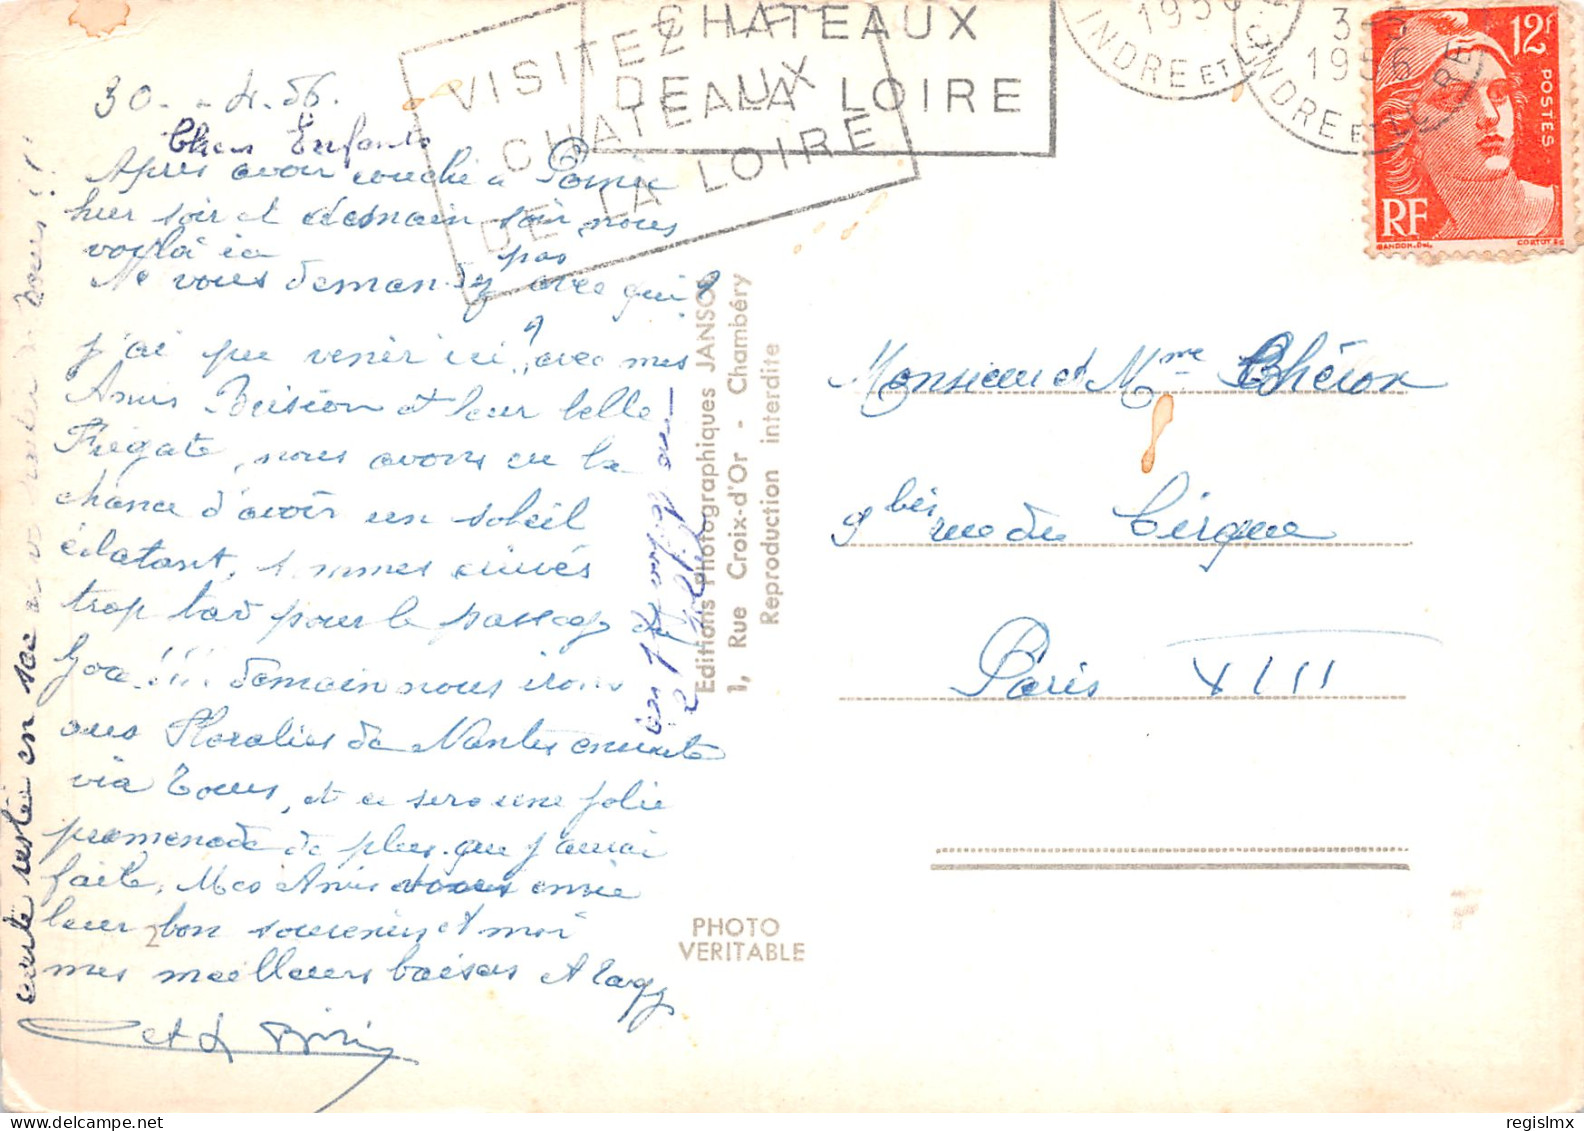 30 - 4. 56.
Chers Enfants
Après avoir couché à
hier soir et demain soir, nous
voylà ici
Ne vous demandez pas avec qui ?
j'ai pu venir ici ?, avec mes
Amis et leur belle
Frégate, nous avons eu la
chance d'avoir un soleil
éclatant, sommes arrivés
trop tard pour le passage du
Goa !!! demain nous irons
aux Floralies de Nantes ensuite
via Tours, et ce sera une jolie
promenade de plus que j'aurai
faite, Mes Amis envie
leur bon souvenir et moi
mes meilleurs baisers
et
carte restée en sac
VISITEZ LES
CHATEAUX
DE LA LOIRE
CHATEAUX
DE LA LOIRE
1956
INDRE ET L
3-5
1956
INDRE ET LOIRE
12F
POSTES
RF
GANDON.Del.
CORTOT SC
Editions Photographiques JANSOL
1, Rue Croix-d'Or - Chambéry
Reproduction interdite
PHOTO
VERITABLE
Monsieur et Mme Chéron
9 bis rue du Cirque
Paris XIII
2
regislmx
Delcampe.net